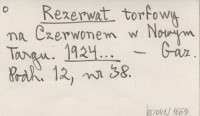 Rezerwat torfowy
na Czerwonem w Nowym
Targu. 1924... – Gaz.
Podh. 12, nr 38.